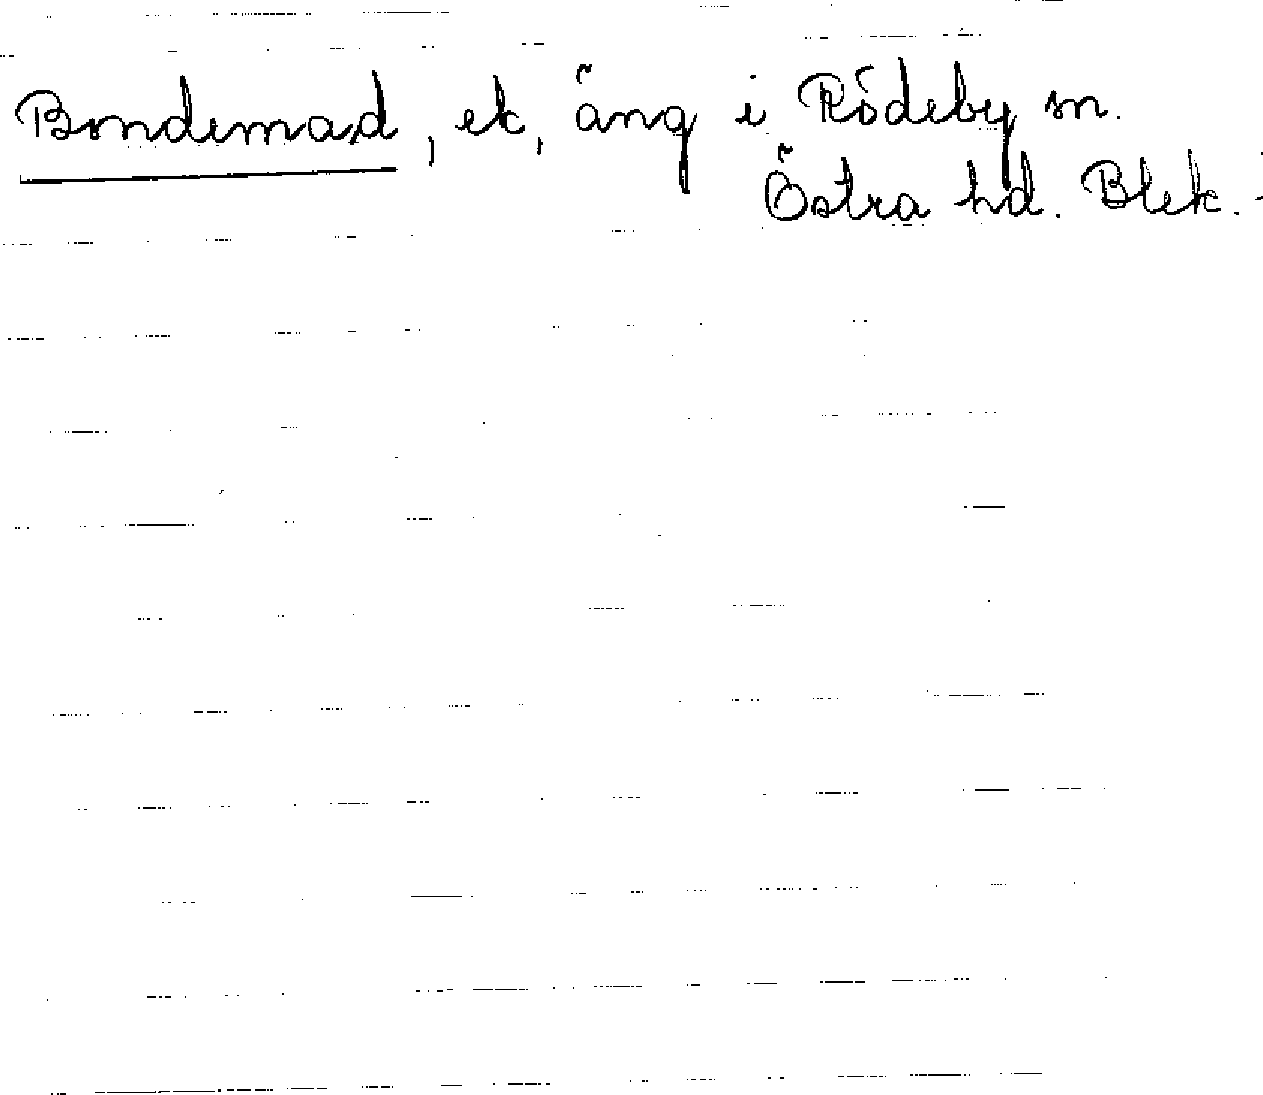 Bondemad, ek, äng i Rödeby sn.
Östra hd. Blek.